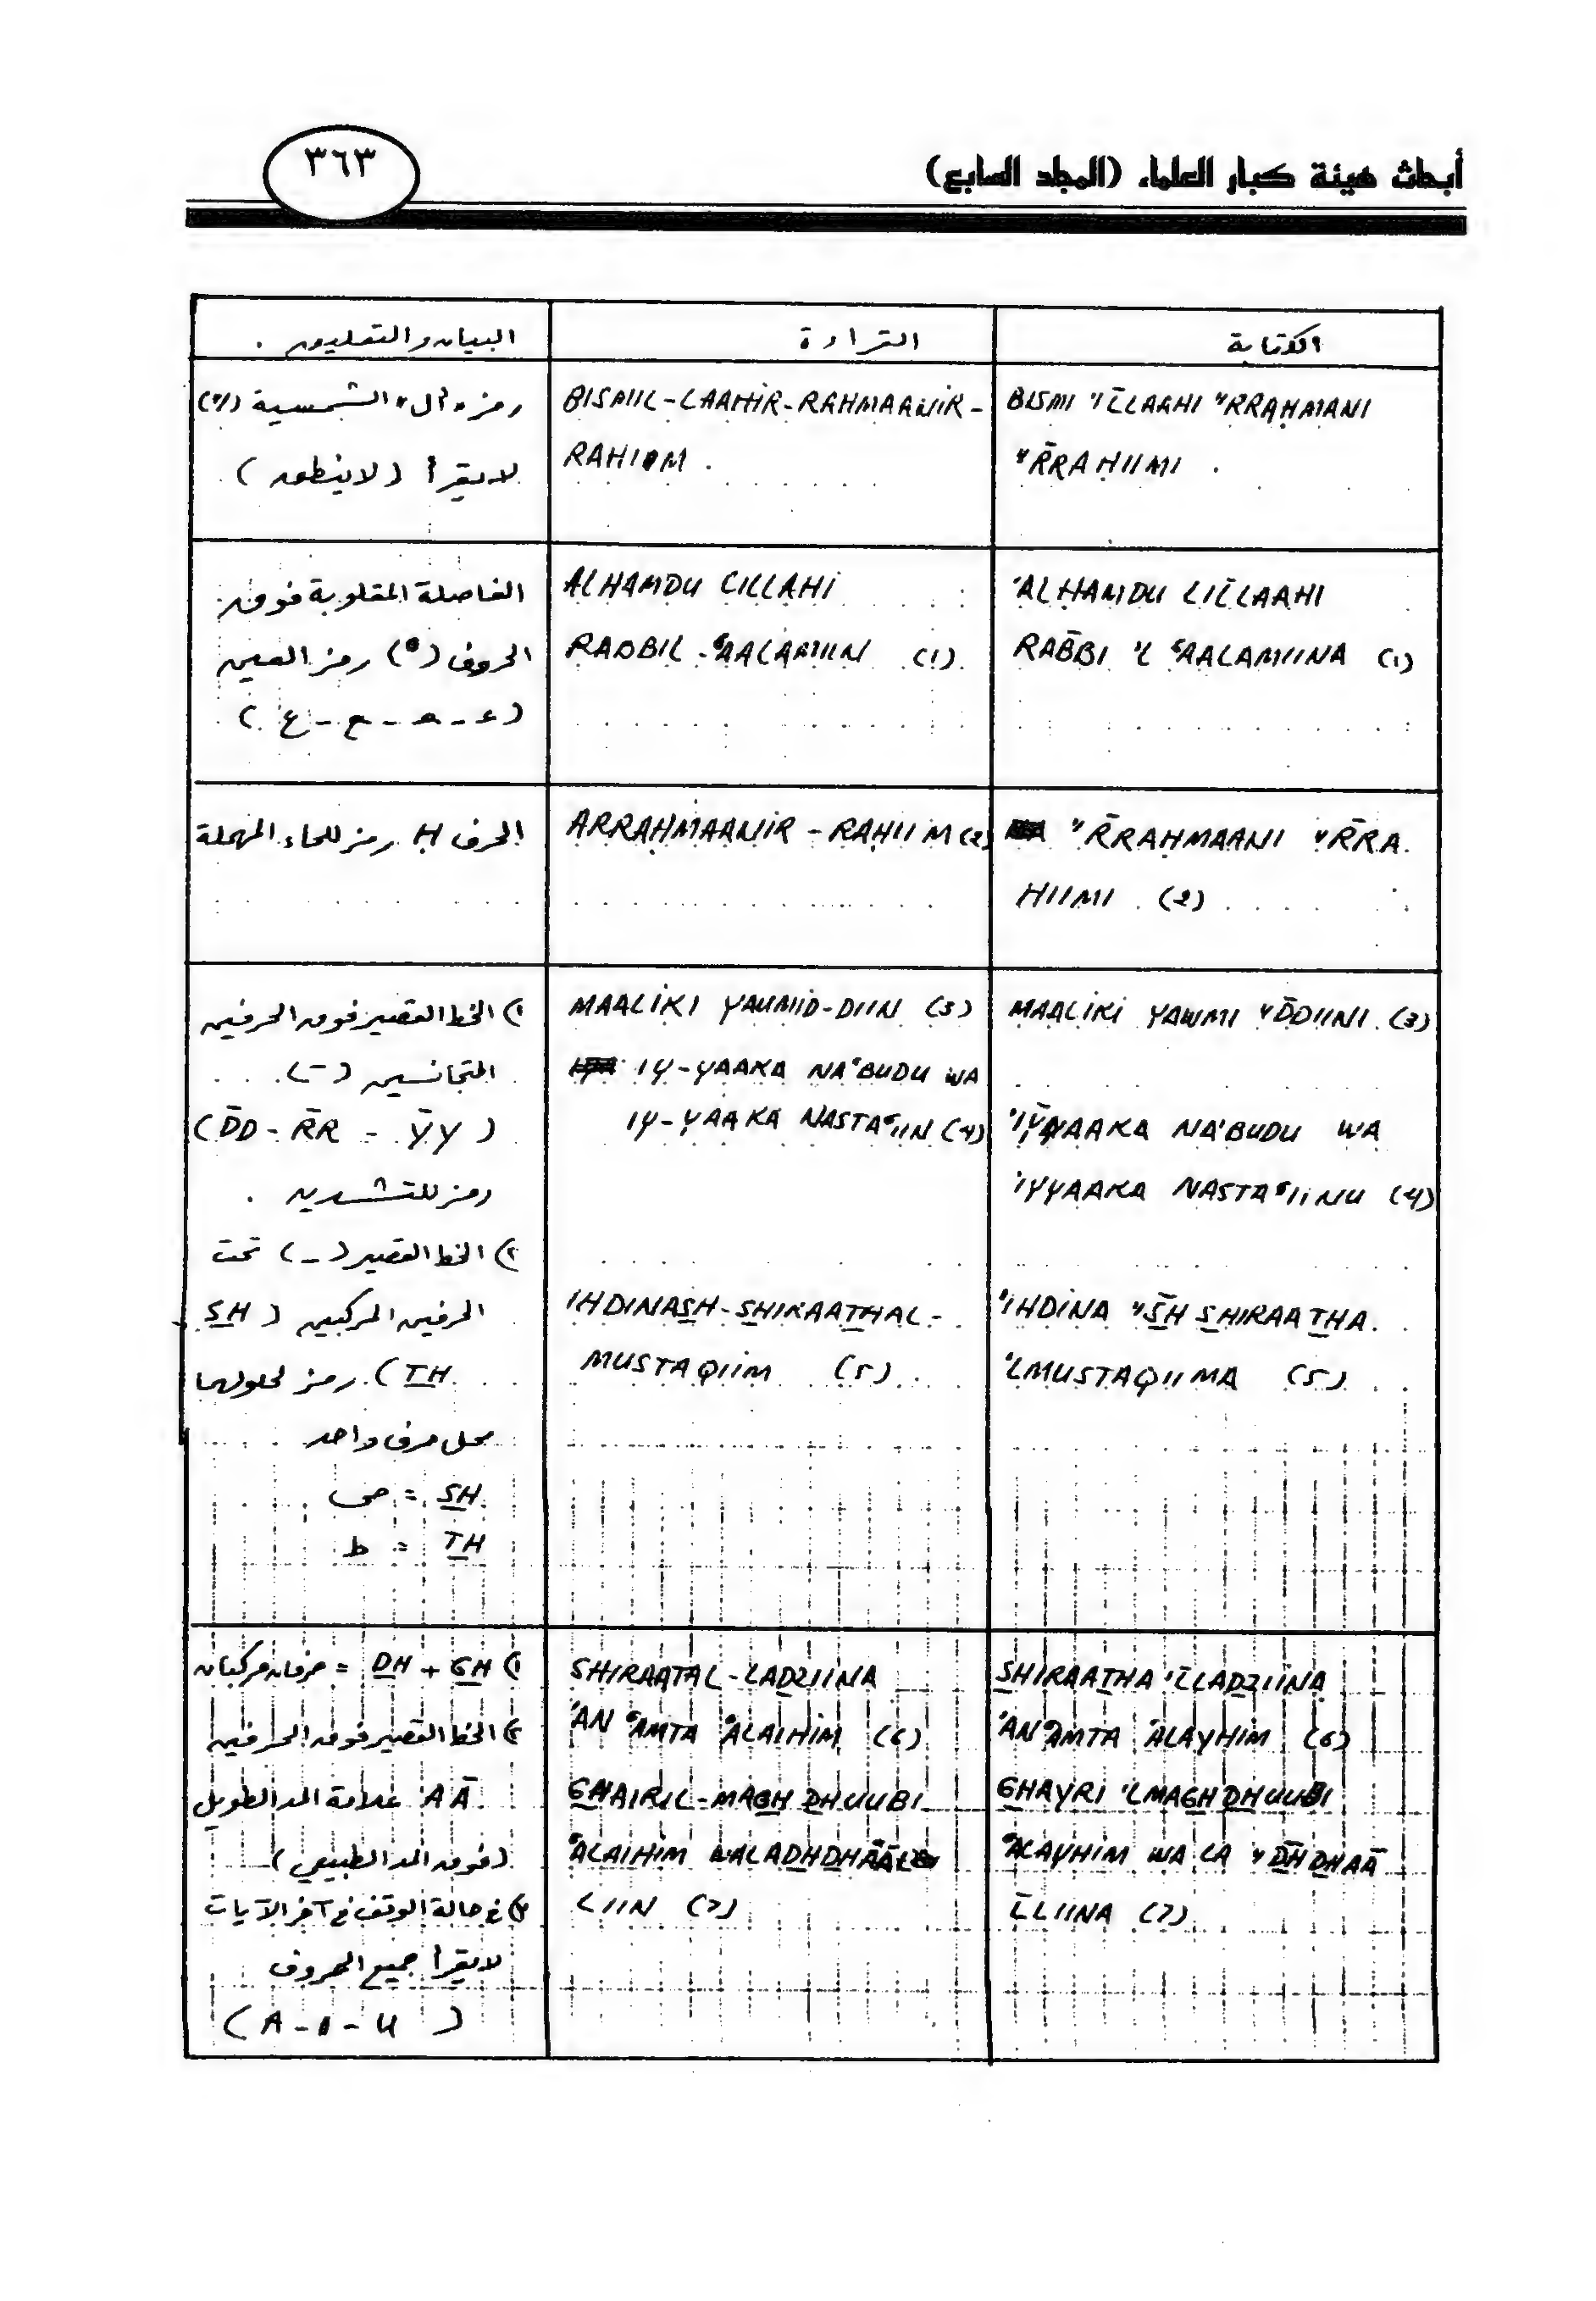 أبحاث هيئة كبار العلماء (المجلد السابع)
٣٦٣
الكتابة
القراءة
البيان والتعليق .
BISMI "L̄LAAHI "RRAḤMANI
"R̄RAḤIIMI .
BISMIL-LAAHIR-RAHMAANIR-
RAHIIM .
رمز « ال » الشمسية (")
لا يقرأ (لا ينطق) .
'ALḤAMDU LIL̄LAAHI
RAB̄BI 'L ʿAALAMIINA (1)
ALHAMDU LILLAHI
RABBIL-ʿAALAMIIN (1).
الفاصلة المقلوبة فوق
الحروف (ʿ) رمز العين
(ء - ه - ح - ع)
"R̄RAḤMAANI "R̄RA
HIIMI (2)
ARRAḤMAANIR-RAḤIIM (2)
الحرف Ḥ رمز للحاء المهملة
MAALIKI YAWMI "D̄DIINI (3)
'IȲYAAKA NA'BUDU WA
'IYYAAKA NASTAʿIINU (4)
'IHDINA "S̄H SHIRAATHA
'LMUSTAQIIMA (5)
MAALIKI YAUMID-DIIN (3)
IY-YAAKA NAʿBUDU WA
IY-YAAKA NASTAʿIIN (4)
IHDINASH-SHIRAATHAL-
MUSTAQIIM (5)
١) الخط القصير فوق الحرفين
المتجانسين (-)
(D̄D - R̄R - ȲY)
رمز للتشديد .
٢) الخط القصير (-) تحت
الحرفين المركبين (SH
TH) رمز لحلولهما
محل حرف واحد
SH = ص
TH = ط
SHIRAATHA 'L̄LADZIINA
'ANʿAMTA ʿALAYHIM (6)
GHAYRI 'LMAGHDHUUBI
ʿALAYHIM WA LA "D̄HDHAAĀ
L̄LIINA (7)
SHIRAATAL-LADZIINA
'ANʿAMTA ʿALAIHIM (6)
GHAIRIL-MAGHDHUUBI
ʿALAIHIM WALADHDHAĀĀL
LIIN (7)
١) GH + DH = حرفان مركبان
٢) الخط القصير فوق الحرفين
AĀ علامة المد الطويل
(فوق المد الطبيعي)
٣) في حالة الوقف في آخر الآيات
لا يقرأ جميع الحروف
(A - I - U)